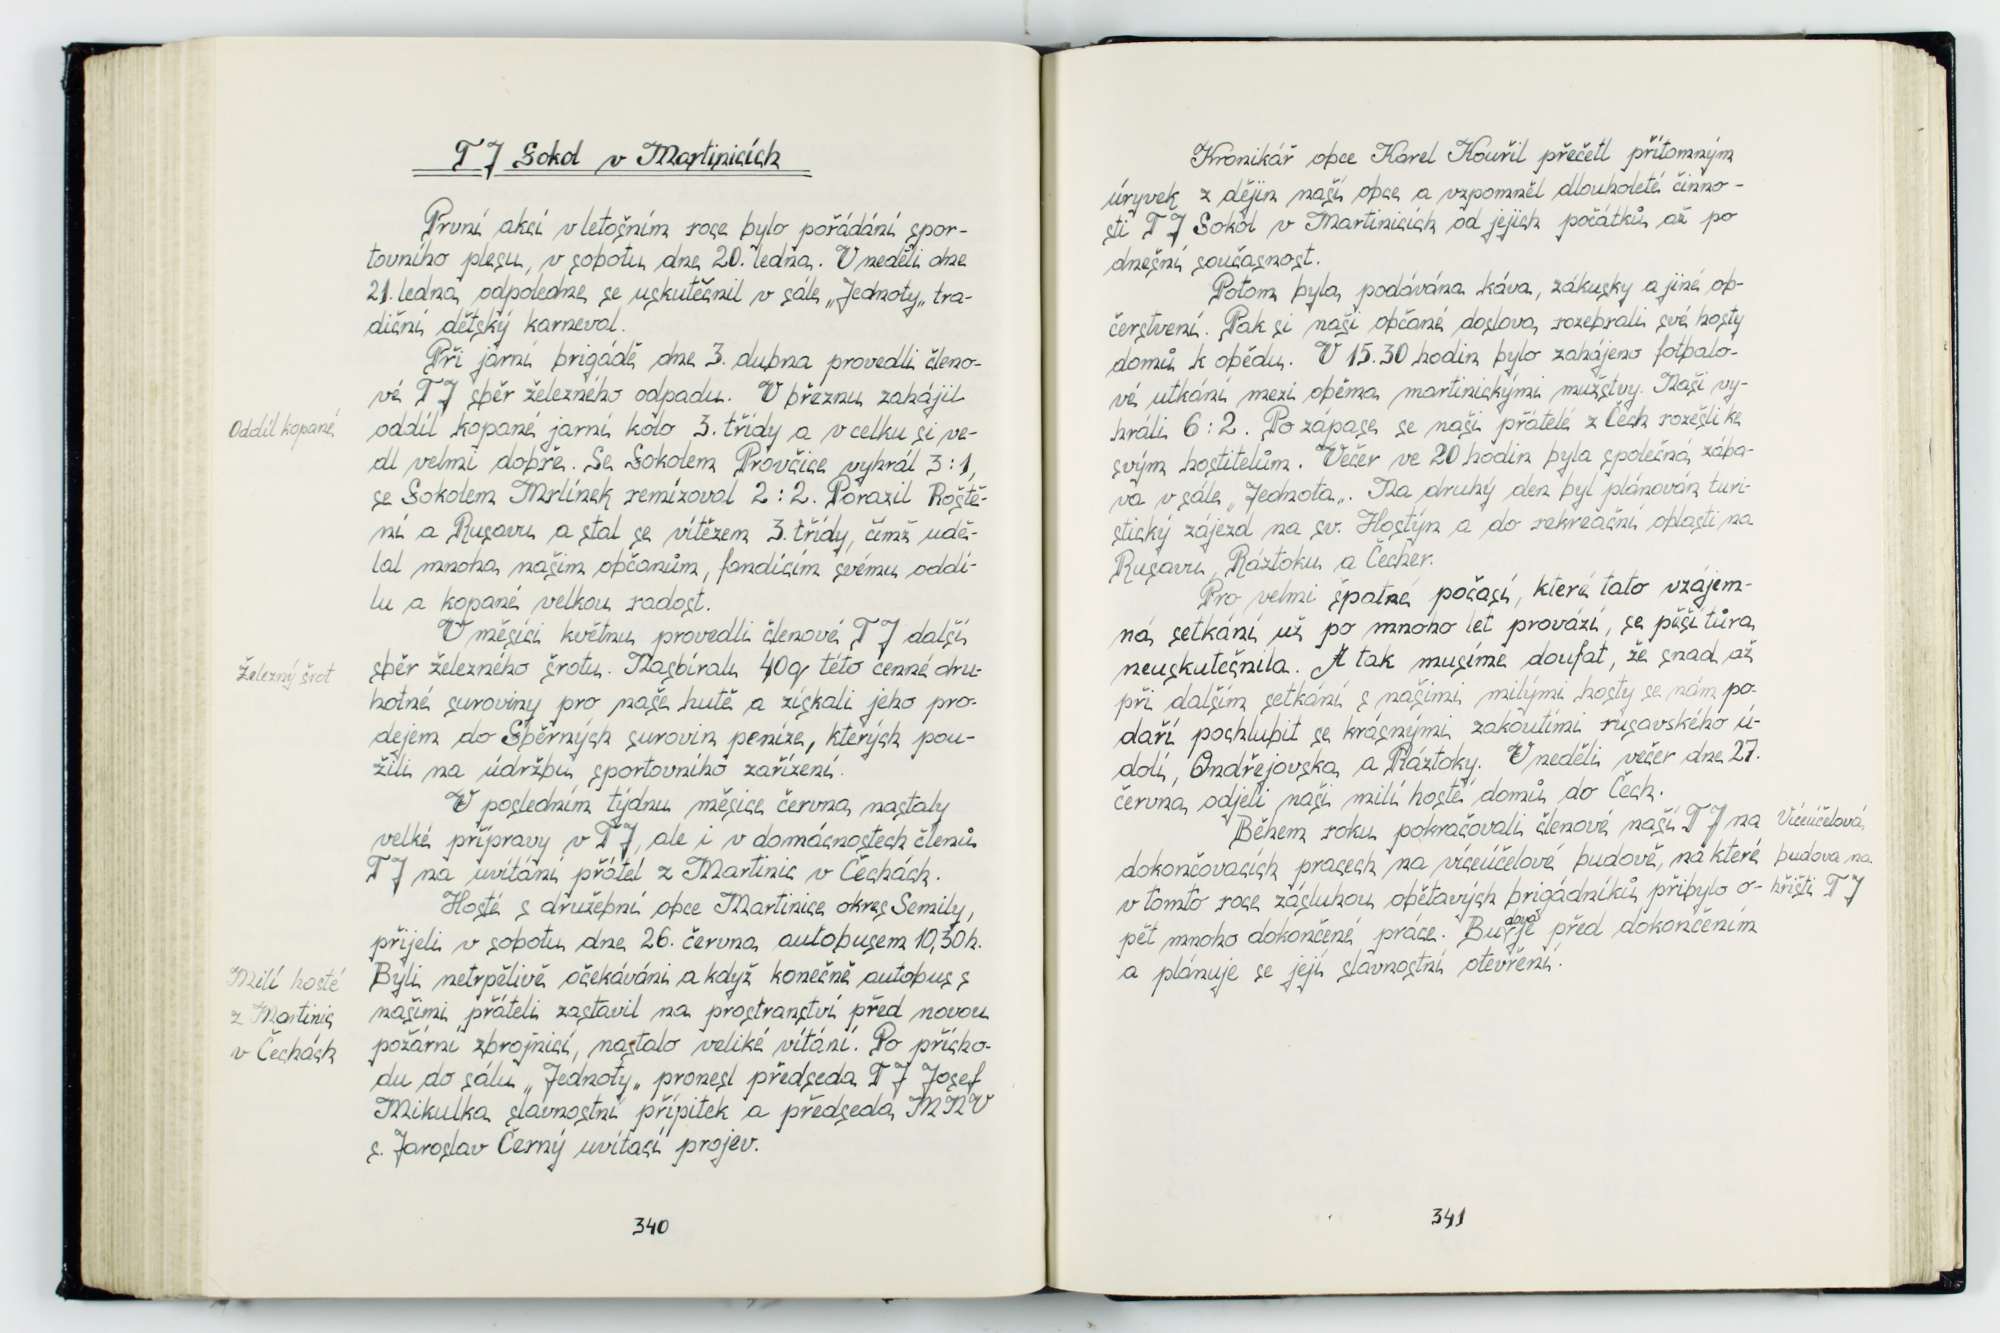 T J Sokol v Martinicích
První akcí v letošním roce bylo pořádání spor-
tovního plesu, v sobotu dne 20. ledna. V neděli dne
21. ledna odpoledne se uskutečnil v sále „Jednoty„ tra-
diční dětský karneval.
Při jarní brigádě dne 3. dubna provedli členo-
vé TJ sběr železného odpadu. V březnu zahájil
Oddíl kopané
oddíl kopané jarní kolo 3. třídy a v celku si ve-
dl velmi dobře. Se Sokolem Provčice vyhrál 3:1,
se Sokolem Mrlínek remízoval 2:2. Porazil Roště-
ní a Rusavu a stal se vítězem 3. třídy, čímž udě-
lal mnoha našim občanům, fandícím svému oddí-
lu a kopané velkou radost.
V měsíci květnu provedli členové TJ další
Železný šrot
sběr železného šrotu. Nasbírali 40q této cenné dru-
hotné suroviny pro naše hutě a získali jeho pro-
dejem do Sběrných surovin peníze, kterých pou-
žili na údržbu sportovního zařízení.
V posledním týdnu měsíce června nastaly
velké přípravy v TJ, ale i v domácnostech členů
TJ na uvítání přátel z Martinic v Čechách.
Hosté s družební obce Martinice okres Semily,
přijeli v sobotu dne 26. června autobusem 10,30 h.
Milí hosté
z Martinic
v Čechách
Byli netrpělivě očekáváni a když konečně autobus s
našimi přáteli zastavil na prostranství před novou
požární zbrojnicí, nastalo veliké vítání. Po přícho-
du do sálu „Jednoty„ pronesl předseda TJ Josef
Mikulka slavnostní přípitek a předseda MNV
s. Jaroslav Černý uvítací projev.
340
Kronikář obce Karel Kouřil přečetl přítomným
úryvek z dějin naší obce a vzpomněl dlouholeté činno-
sti TJ Sokol v Martinicích od jejich počátků až po
dnešní současnost.
Potom byla podávána káva, zákusky a jiné ob-
čerstvení. Pak si naši občané doslova rozebrali své hosty
domů k obědu. V 15.30 hodin bylo zahájeno fotbalo-
vé utkání mezi oběma martinickými mužstvy. Naši vy-
hráli 6:2. Po zápase se naši přátelé z Čech rozešli ke
svým hostitelům. Večer ve 20 hodin byla společná zába-
va v sále „Jednota„. Na druhý den byl plánován turi-
stický zájezd na sv. Hostýn a do rekreační oblasti na
Rusavu, Ráztoku a Čecher.
Pro velmi špatné počasí, které tato vzájem-
ná setkání už po mnoho let provází, se pěší tůra
neuskutečnila. A tak musíme doufat, že snad až
při dalším setkání s našimi milými hosty se nám po-
daří pochlubit se krásnými zákoutími rusavského ú-
dolí, Ondřejovska a Ráztoky. V neděli večer dne 27.
června odjeli naši milí hosté domů do Čech.
Během roku pokračovali členové naší TJ na
dokončovacích pracech na víceúčelové budově, na které
v tomto roce zásluhou obětavých brigádníků přibylo o-
Víceúčelová
budova na
hřišti TJ
pět mnoho dokončené práce. Budova je před dokončením
a plánuje se její slavnostní otevření.
341